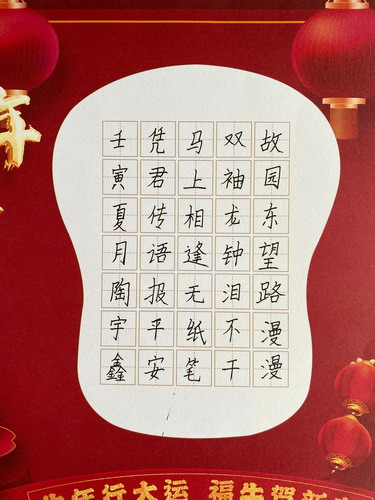 故园东望路漫漫
双袖龙钟泪不干
马上相逢无纸笔
凭君传语报平安
壬寅夏月陶宇鑫
年
牛年行大运 福牛贺